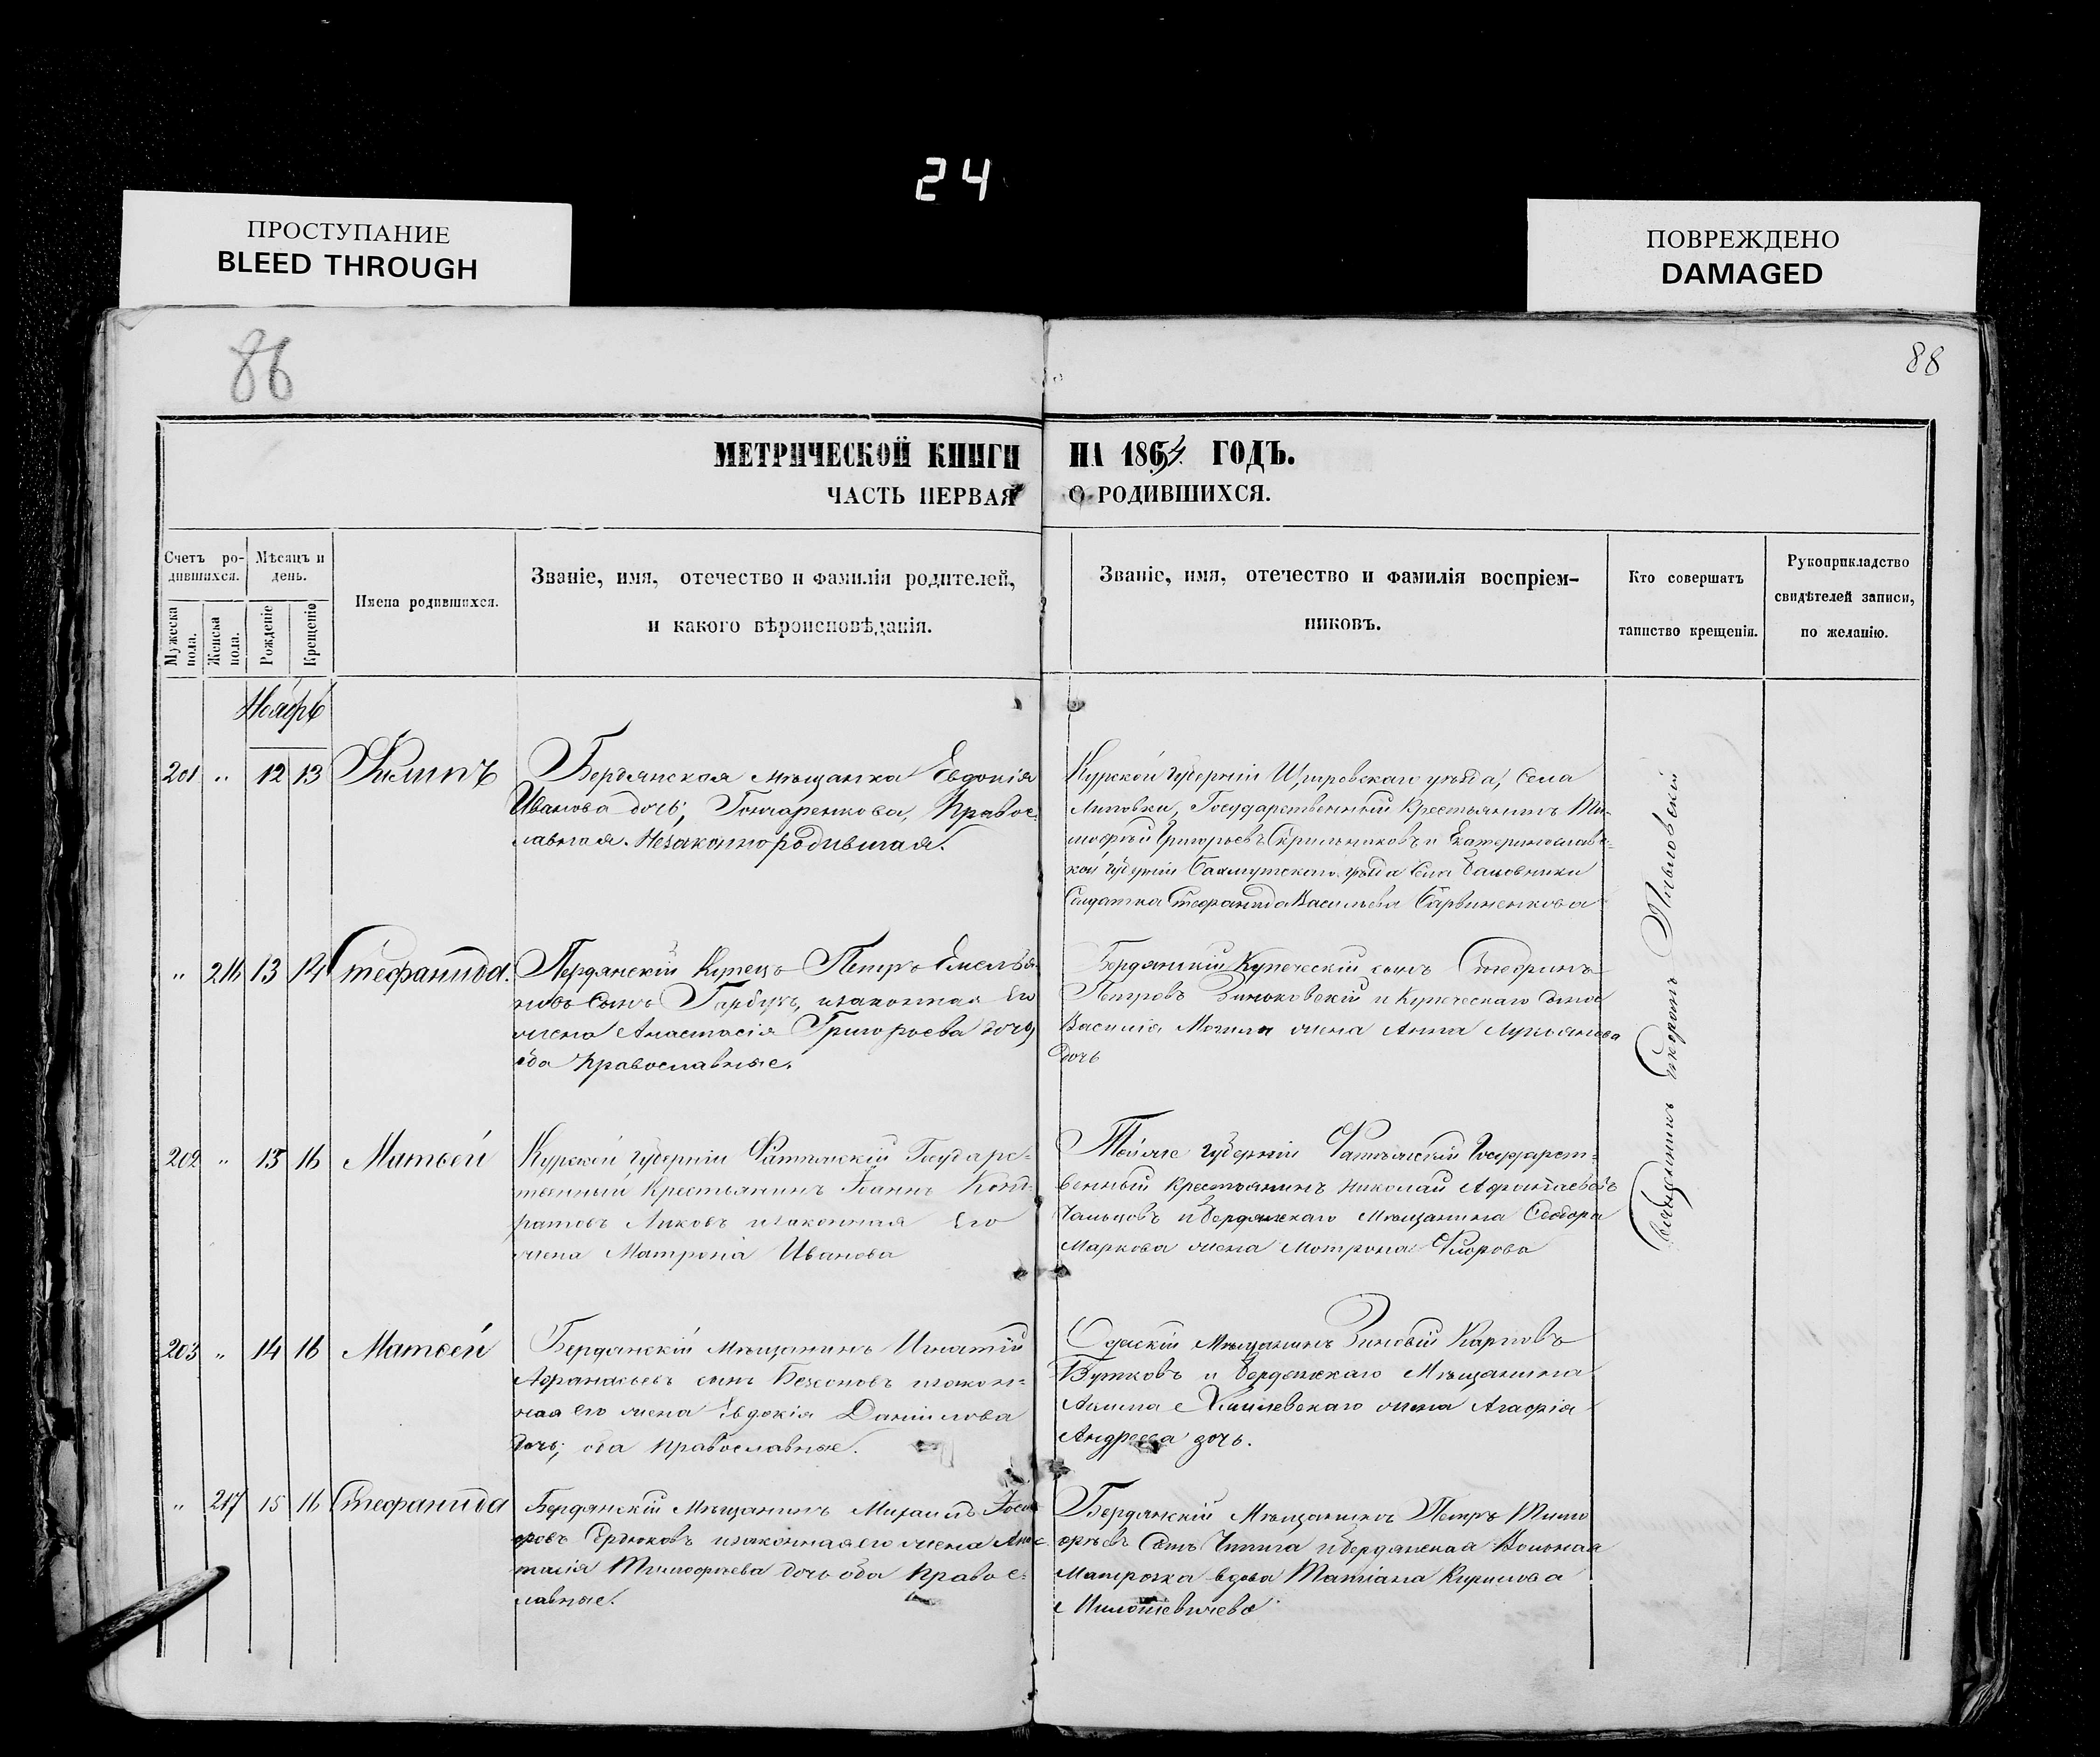 24
ПРОСТУПАНИЕ
BLEED THROUGH
ПОВРЕЖДЕНО
DAMAGED
86
88
МЕТРИЧЕСКОЙ КНИГИ НА 1854 ГОДЪ.
ЧАСТЬ ПЕРВАЯ О РОДИВШИХСЯ.
Счетъ ро-
дившихся.
Мужеска пола.
Женска пола.
Мѣсяцъ и
день.
Рожденіе
Крещеніе
Имена родившихся.
Званіе, имя, отечество и фамиліи родителей,
и какого вѣроисповѣданія.
Званіе, имя, отечество и фамилія воспріем-
никовъ.
Кто совершатъ
таинство крещенія.
Рукоприкладство
свидѣтелей записи,
по желанію.
Ноябрь
201 „ 12 13 Филипъ
Бердянская мѣщанка Евдокія
Иванова дочь, Гончаренкова, Правос-
лавная. Незаконнородившая.
Курской губерніи Щигровскаго уѣзда, Села
Липовки, Государственный Крестьянинъ Ти-
мофѣй Григорьевъ Скрильниковъ и Екатеринославс-
кой губерніи Бахмутскаго уѣзда Села
Солдатка Стефанида Васильева
„ 216 13 14 Стефанида.
Бердянскій Купецъ Петръ Емелья-
новъ сынъ Гарбузъ, изаконная Его
жена Анастасія Григорьева дочь,
оба Православные.
Бердянскій Купеческій сынъ
Петровъ и Купеческаго сына
Василія жена Анна
дочь
202 „ 13 16 Матвей
Курской губерніи Фатежскій Государс-
твенный Крестьянинъ Іоаннъ Конд-
ратовъ Лыковъ изаконная Его
жена Матрона Иванова
Тойже губерніи Фатежскій Государст-
венный крестьянинъ Николай
и бердянскаго Мѣщанина Ѳедора
Маркова жена Мотрона Флорова
203 „ 14 16 Матвей
Бердянскій Мѣщанинъ Игнатій
Афанасьевъ сынъ Безсоновъ изакон-
ная его жена Евдокія Даніилова
дочь, оба Православные.
Мѣщанинъ Зиновій Карповъ
Бутковъ и бердянскаго Мѣщанина
жена Агафія
Андреева дочь.
„ 217 15 16 Стефанида
Бердянскій Мѣщанинъ Михаилъ
Сердюковъ изаконная его жена Анас-
тасія Тимофѣева дочь оба Правос-
лавные.
Бердянскій Мѣщанинъ Петръ Тимо-
фѣевъ Сынъ Чипига и бердянская Вольная
Матроска вдова Татіана Кирилова
Милошевичева
Священникъ Пивловскій